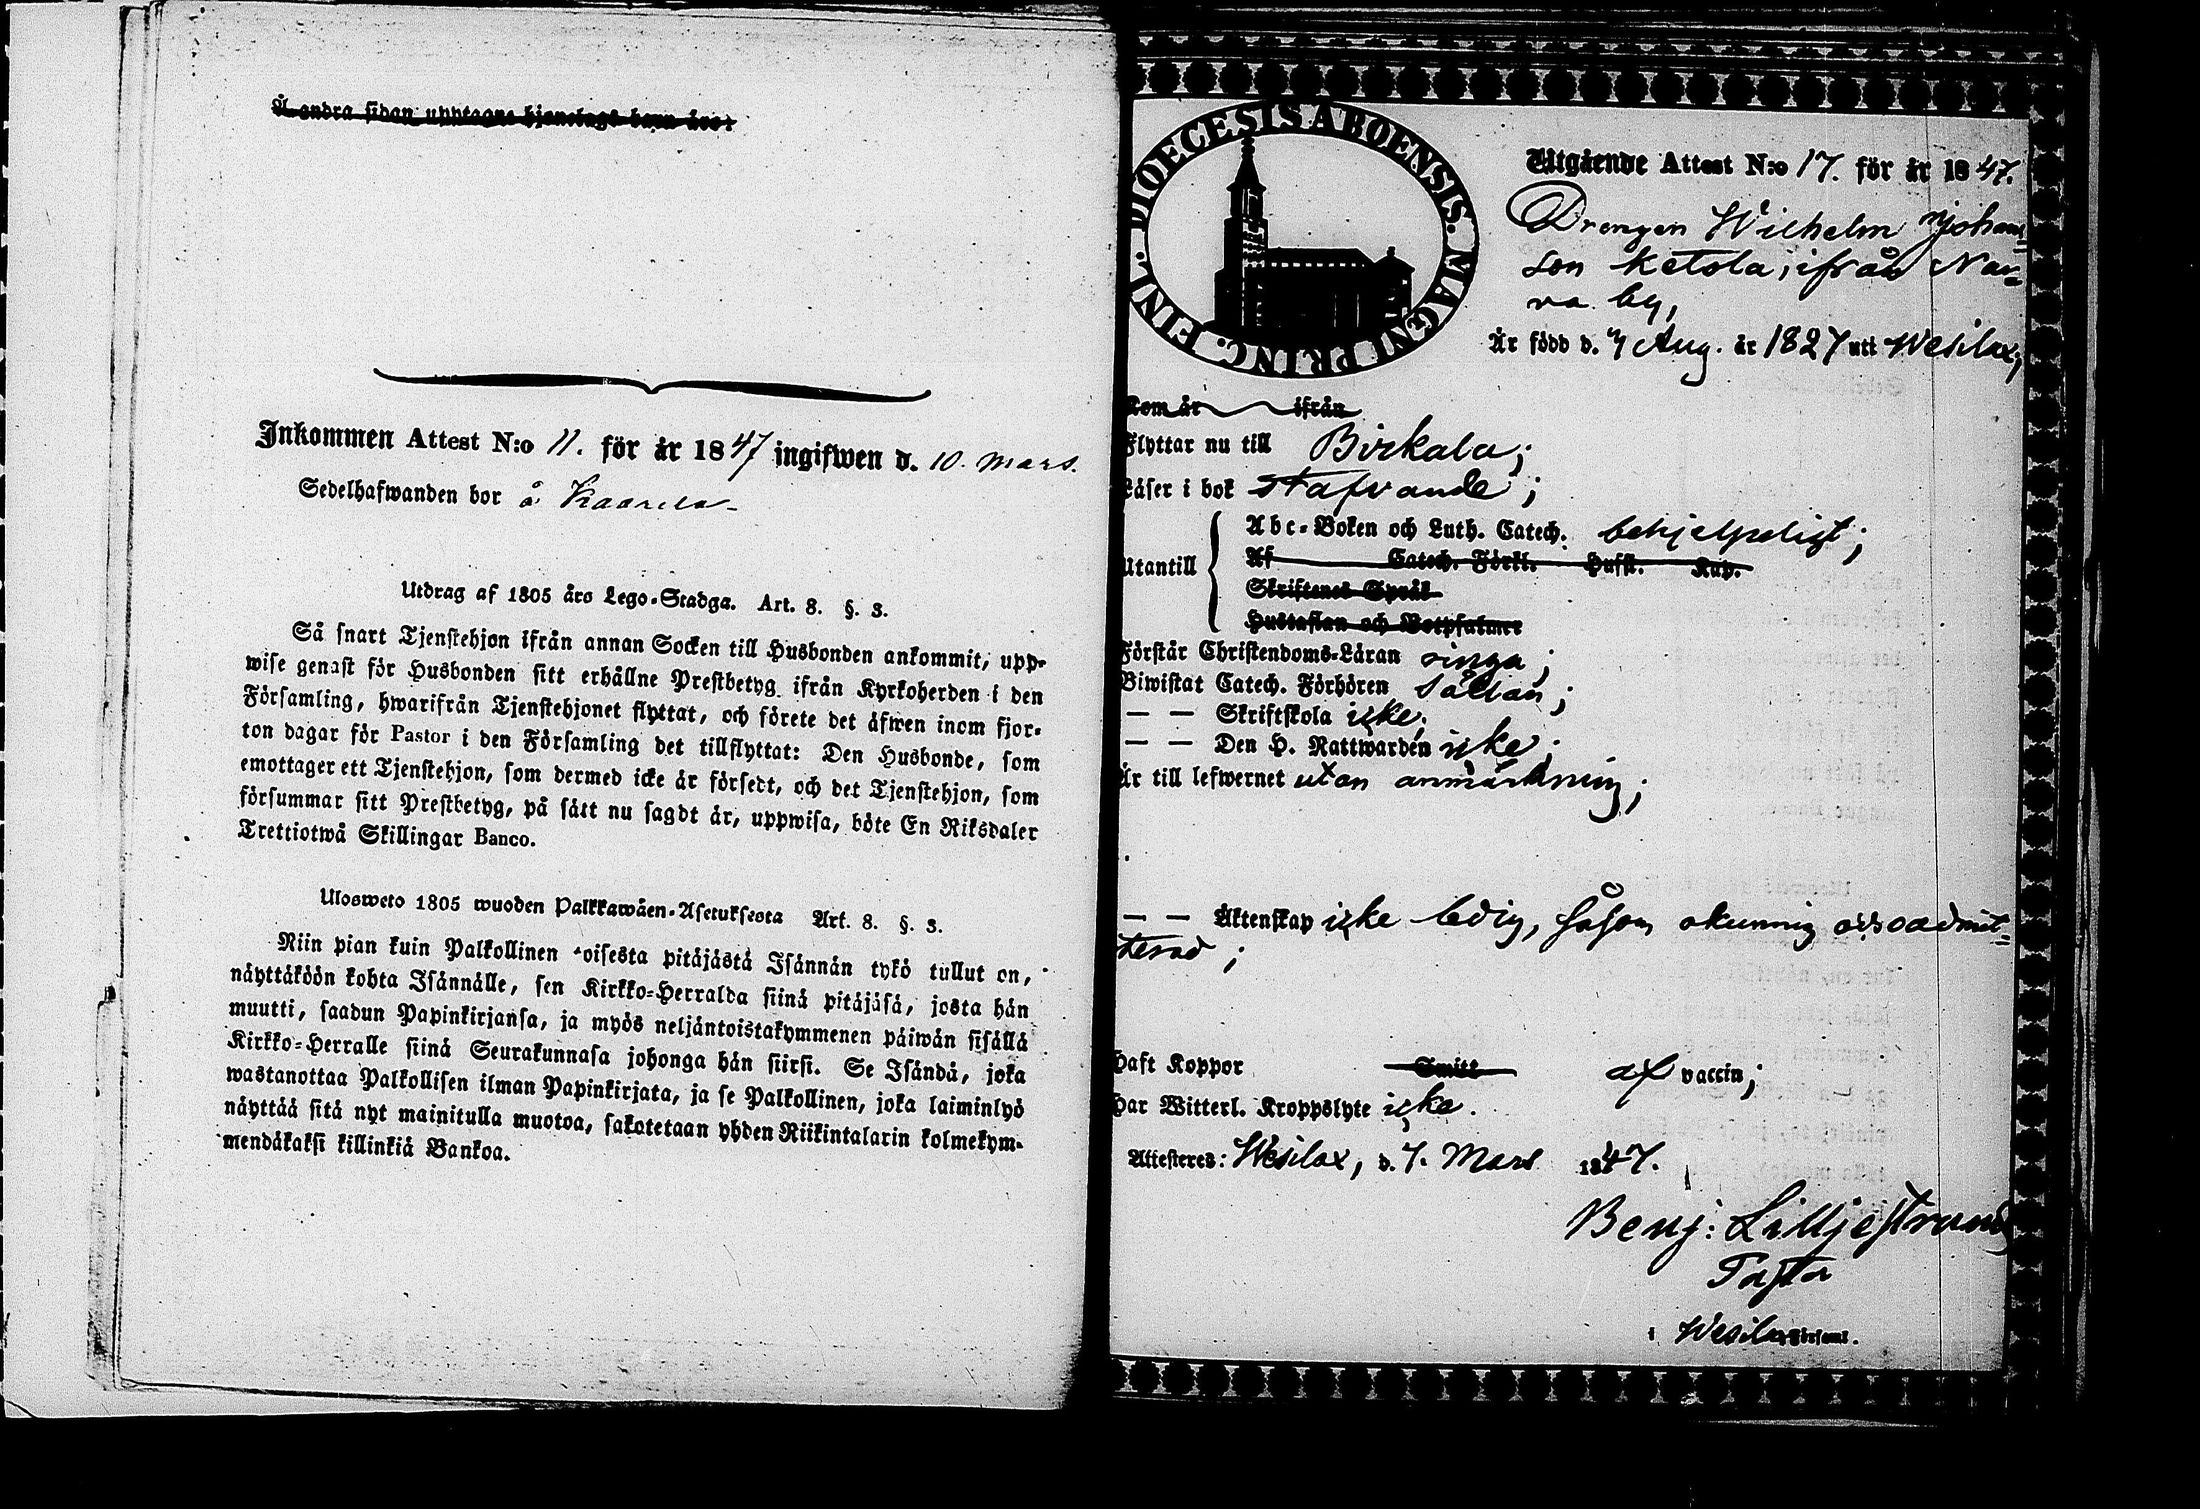 Å andra sidan upptagne tjenstogs barn äro:
Inkommen Attest N:o 11. för år 1847 ingifwen d. 10. Mars.
Sedelhafwanden bor å Kaarela
Utdrag af 1805 års Lego-Stadga. Art. 8. §. 3.
Så snart Tjenstehjon ifrån annan Socken till Husbonden ankommit, upp-
wise genast för Husbonden sitt erhållne Prestbetyg ifrån Kyrkoherden i den
Församling, hwarifrån Tjenstehjonet flyttat, och förete det äfwen inom fjor-
ton dagar för Pastor i den Församling det tillflyttat: Den Husbonde, som
emottager ett Tjenstehjon, som dermed icke är försedt, och det Tjenstehjon, som
försummar sitt Prestbetyg, på sätt nu sagdt är, uppwisa, böte En Riksdaler
Trettiotwå Skillingar Banco.
Ulosweto 1805 wuoden Palkkawäen-Asetuksesta Art. 8. §. 3.
Niin pian kuin Palkollinen toisesta pitäjästä Isännän tykö tullut on,
näyttäköön kohta Isännälle, sen Kirkko-Herralda siinä pitäjäsä, josta hän
muutti, saadun Papinkirjansa, ja myös neljäntoistakymmenen päiwän sisällä
Kirkko-Herralle siinä Seurakunnasa johonga hän siirsi. Se Isändä, joka
wastanottaa Palkollisen ilman Papinkirjata, ja se Palkollinen, joka laiminlyö
näyttää sitä nyt mainitulla muotoa, sakotetaan yhden Riikintalarin kolmekym-
mendäkaksi killinkiä Bankoa.
DIOECESIS ABOENSIS. MAGNI PRINC. FINL.
Utgående Attest N:o 17. för år 1847.
Drengen Wilhelm Johans-
son Ketola, ifrån Nar-
va by,
Är född d. 7 Aug. år 1827 uti Wesilax,
Kom år ifrån
Flyttar nu till Birkala;
Läser i bok stafvande;
Abc-Boken och Luth. Catech. behjelpeligt;
Utantill Af Catech. Förkl. Hufst. Kap.
Skriftenes Språk
Hustaflan och Botpsalmer
Förstår Christendoms-Läran ringa;
Biwistat Catech. Förhören sällan;
— — Skriftskola icke;
— — Den H. Nattwarden icke;
Är till lefwernet utan anmärkning;
— — Äktenskap icke ledig, såsom okunnig och oadmit-
terad;
Haft Koppor Smitt af vaccin;
Har Witterl. Kroppslyte icke.
Attesteres: Wesilax, d. 7. Mars 1847.
Benj: Lilljestrand
Pastor
i Wesilax Församl.